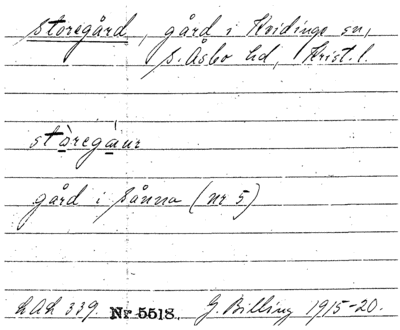 Storegård, gård i Kvidinge sn,
S. Åsbo hd, Krist. l.
stòregáur
gård i Sånna (nr 5)
LAL 339. Nr 5518. G. Billing 1915-20.